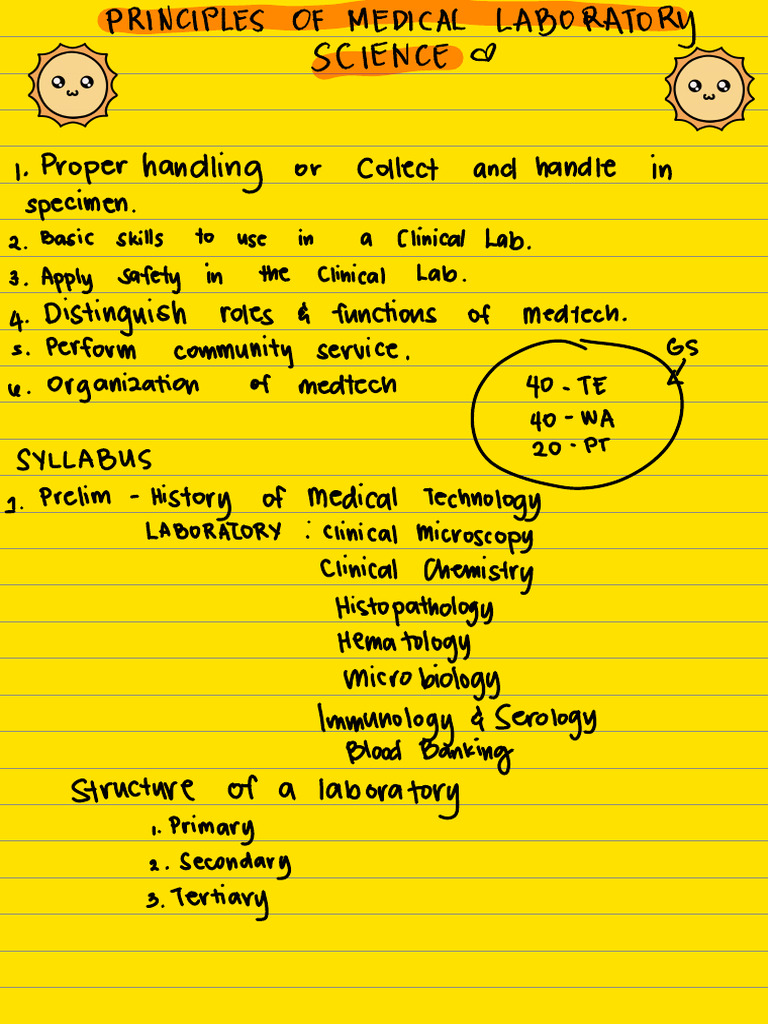 PRINCIPLES OF MEDICAL LABORATORY
SCIENCE
1. Proper handling or Collect and handle in
specimen.
2. Basic skills to use in a Clinical Lab.
3. Apply safety in the Clinical Lab.
4. Distinguish roles & functions of medtech.
5. Perform community service.
6. Organization of medtech
GS
40 - TE
40 - WA
20 - PT
SYLLABUS
1. Prelim - History of Medical Technology
LABORATORY : Clinical Microscopy
Clinical Chemistry
Histopathology
Hematology
Microbiology
Immunology & Serology
Blood Banking
Structure of a laboratory
1. Primary
2. Secondary
3. Tertiary